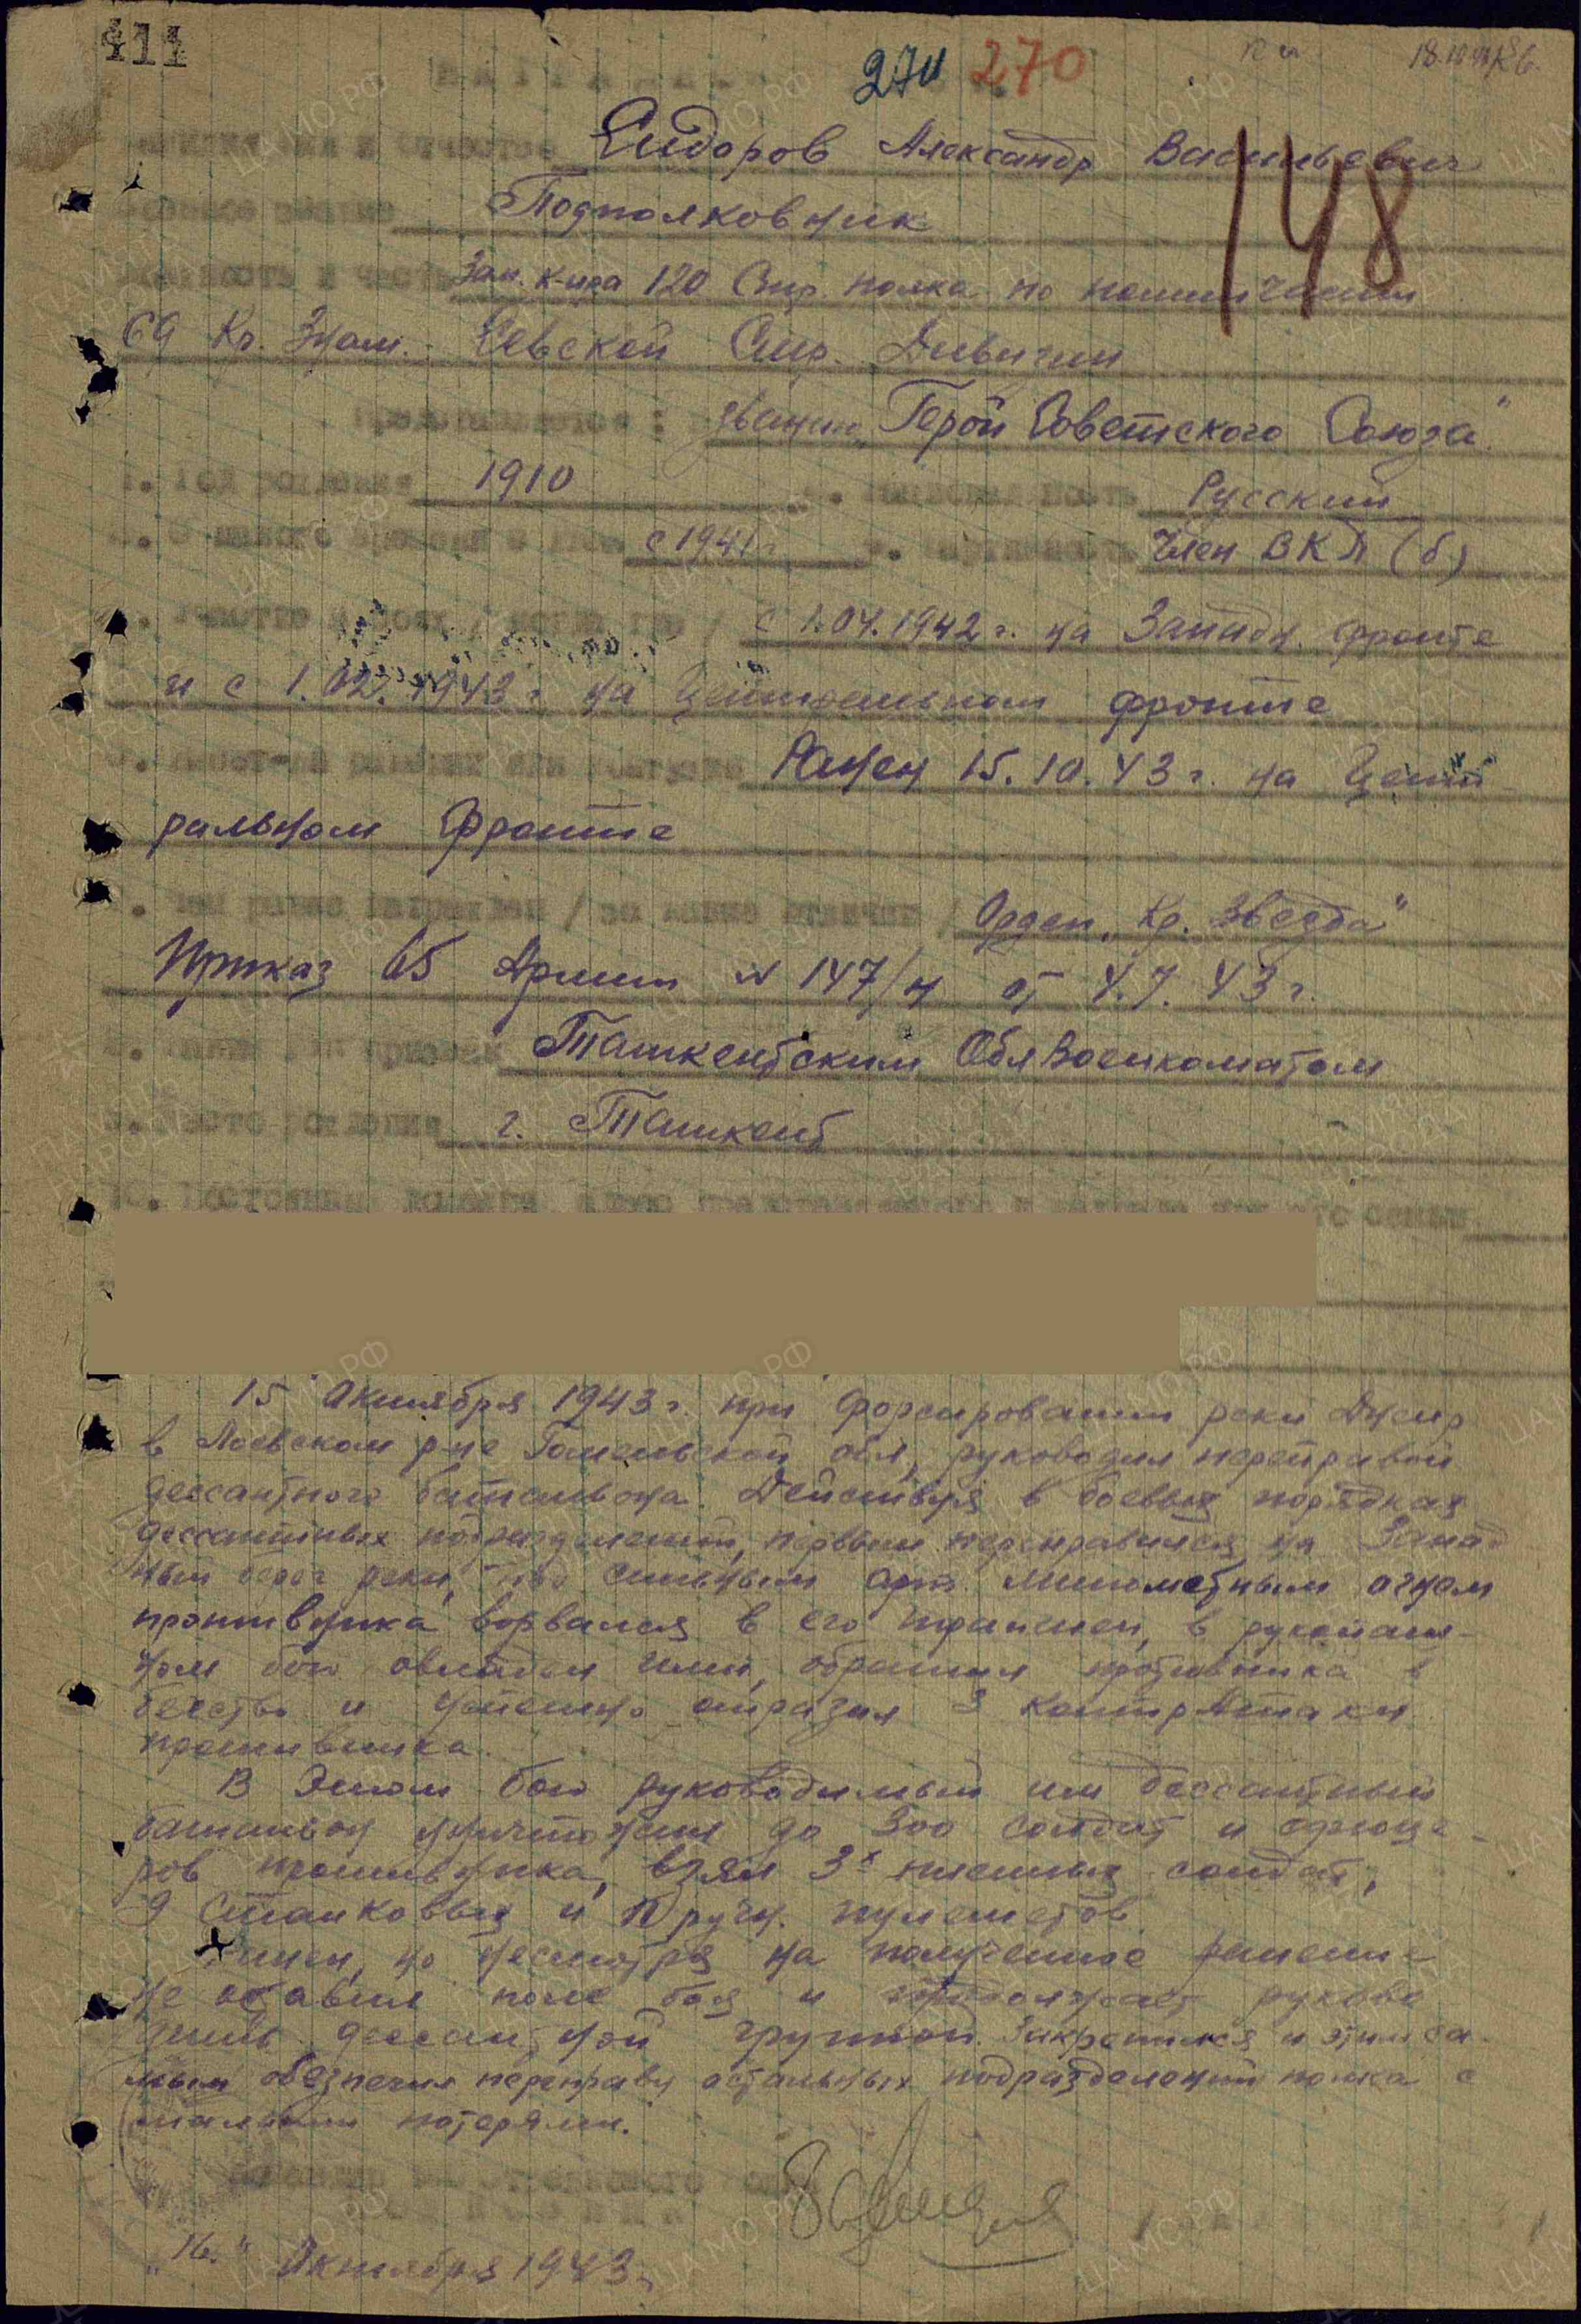 411
270
18.10.43
148
Сидоров Александр Васильевич
Подполковник
Зам. к-ира 120 Стр. полка по политчасти
69 Кр. Знам. Севской Стр. Дивизии
званию „Герой Советского Союза"
1. Год рождения 1910 Русский
с 1941 г. Член ВКП(б)
с 1.04.1942 г. на Западн. фронте
и с 1.02.1943 г. на Центральном фронте
Ранен 15.10.43 г. на Цент
ральном Фронте
Орден „Кр. Звезда"
Приказ 65 Армии № 147/н от 4.7.43 г.
Ташкентским Облвоенкоматом
г. Ташкент
15 Октября 1943 г. при форсировании реки Днепр
в Лоевском р-не Гомельской обл, руководил переправой
десантного батальона. Действуя в боевых порядках
десантных подразделений, первым переправился на Запад
ный берег реки, под сильным арт. минометным огнем
противника ворвался в его траншеи, в рукопаш-
ном бою овладел ими, обратил противника в
бегство и успешно отразил 3 контратаки
противника.
В этом бою руководимый им десантный
батальон уничтожил до 300 солдат и офице-
ров противника, взял 3х пленных солдат,
9 станковых и ручн. пулеметов.
Ранен, но несмотря на полученное ранение
не оставил поле боя и продолжает руково
дить десантной группой. Закрепился и этим са-
мым обезпечил переправу остальных подразделений полка с
малыми потерями.
„16." Октября 1943 г.
ЦАМО.РФ
ПАМЯТЬ
НАРОДА